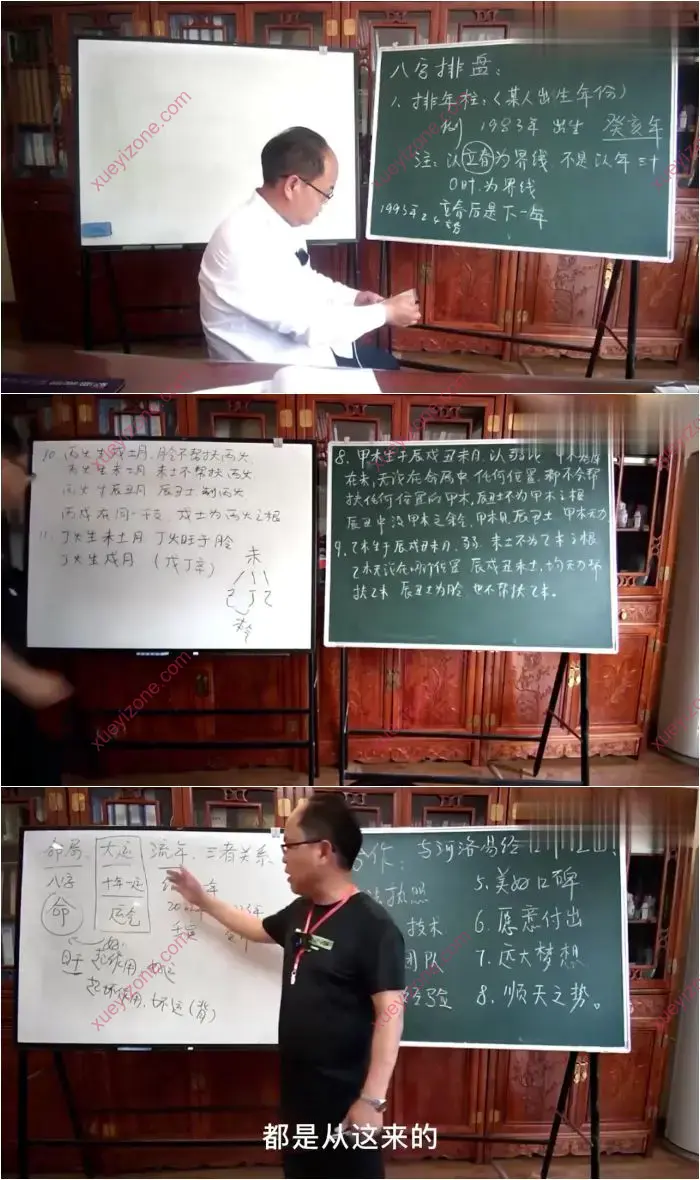 八字排盘：
1、排年柱：（某人出生年份）
例 1983年 出生 癸亥年
注：以立春为界线 不是以年三十
0时为界线
立春后是下一年
xueyizone.com
10. 丙火生戌土月，
丙火生未土月 未土不帮扶丙火
丙火生辰丑月 辰丑土
丙戌在同一干支，戌土为丙火之根
11. 丁火生未土月 丁火旺于
丁火生戌月 （戊丁辛）
未
己丁乙
8. 甲木生于辰戌丑未月，以弱论
在未，无论在命局中任何位置，都不会帮
扶任何位置的甲木，辰丑土不为甲木之根
辰丑中没甲木之余，甲木见辰丑土 甲木无力
9. 乙木生于辰戌丑未月，弱，未土不为乙木之根
乙木无论在何位置 辰戌丑未土，均无力帮
扶乙木 辰丑土为 也不帮扶乙木。
xueyizone.com
命局、大运、流年、三者关系
八字 十年一运
命 运气 20
好
日干 起作用 好运
起坏作用、坏运（背）
作：与河洛易经
执照 5. 美好口碑
技术 6. 愿意付出
团队 7. 远大梦想
经验 8. 顺天之势。
xueyizone.com
都是从这来的